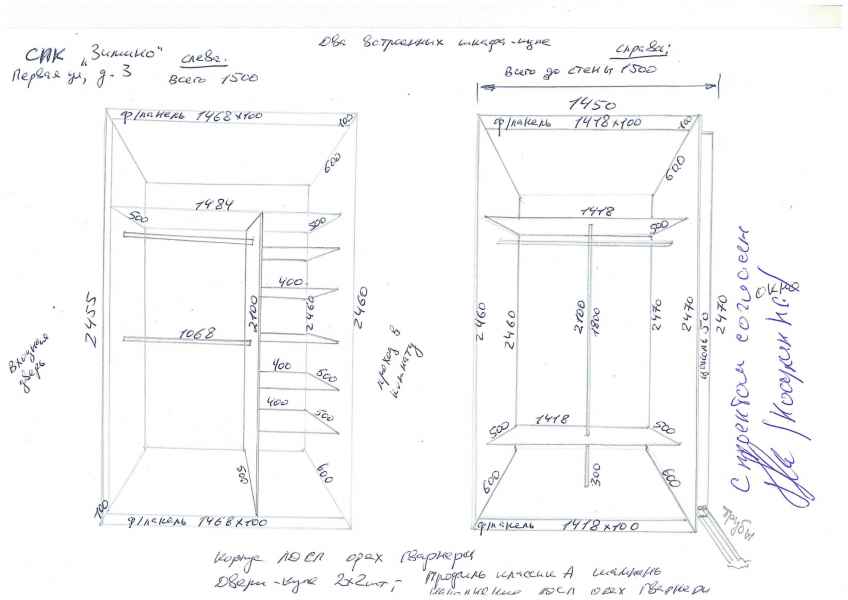 Два встроенных шкафа-купе
СПК „Зимино"
Первая ул, д. 3
слева:
Всего 1500
справа:
Всего до стены 1500
1450
ф/панель 1468х100
100
600
1484
500
500
400
2455
2100
2460
2460
1068
400
500
400
500
Входная
дверь
проход в
комнату
500
600
100
ф/панель 1468х100
ф/панель 1418х100
100
600
1418
500
2460
2460
2100
1800
2470
2470
цоколь 50
2470
окно
1418
500
500
600
300
600
ф/панель 1418х100
трубы
С проектом согласен
Корпус ЛДСП орех Гварнери
Двери-купе 2х2шт; Профиль классик А шампань
наполнение лдсп орех Гварнери